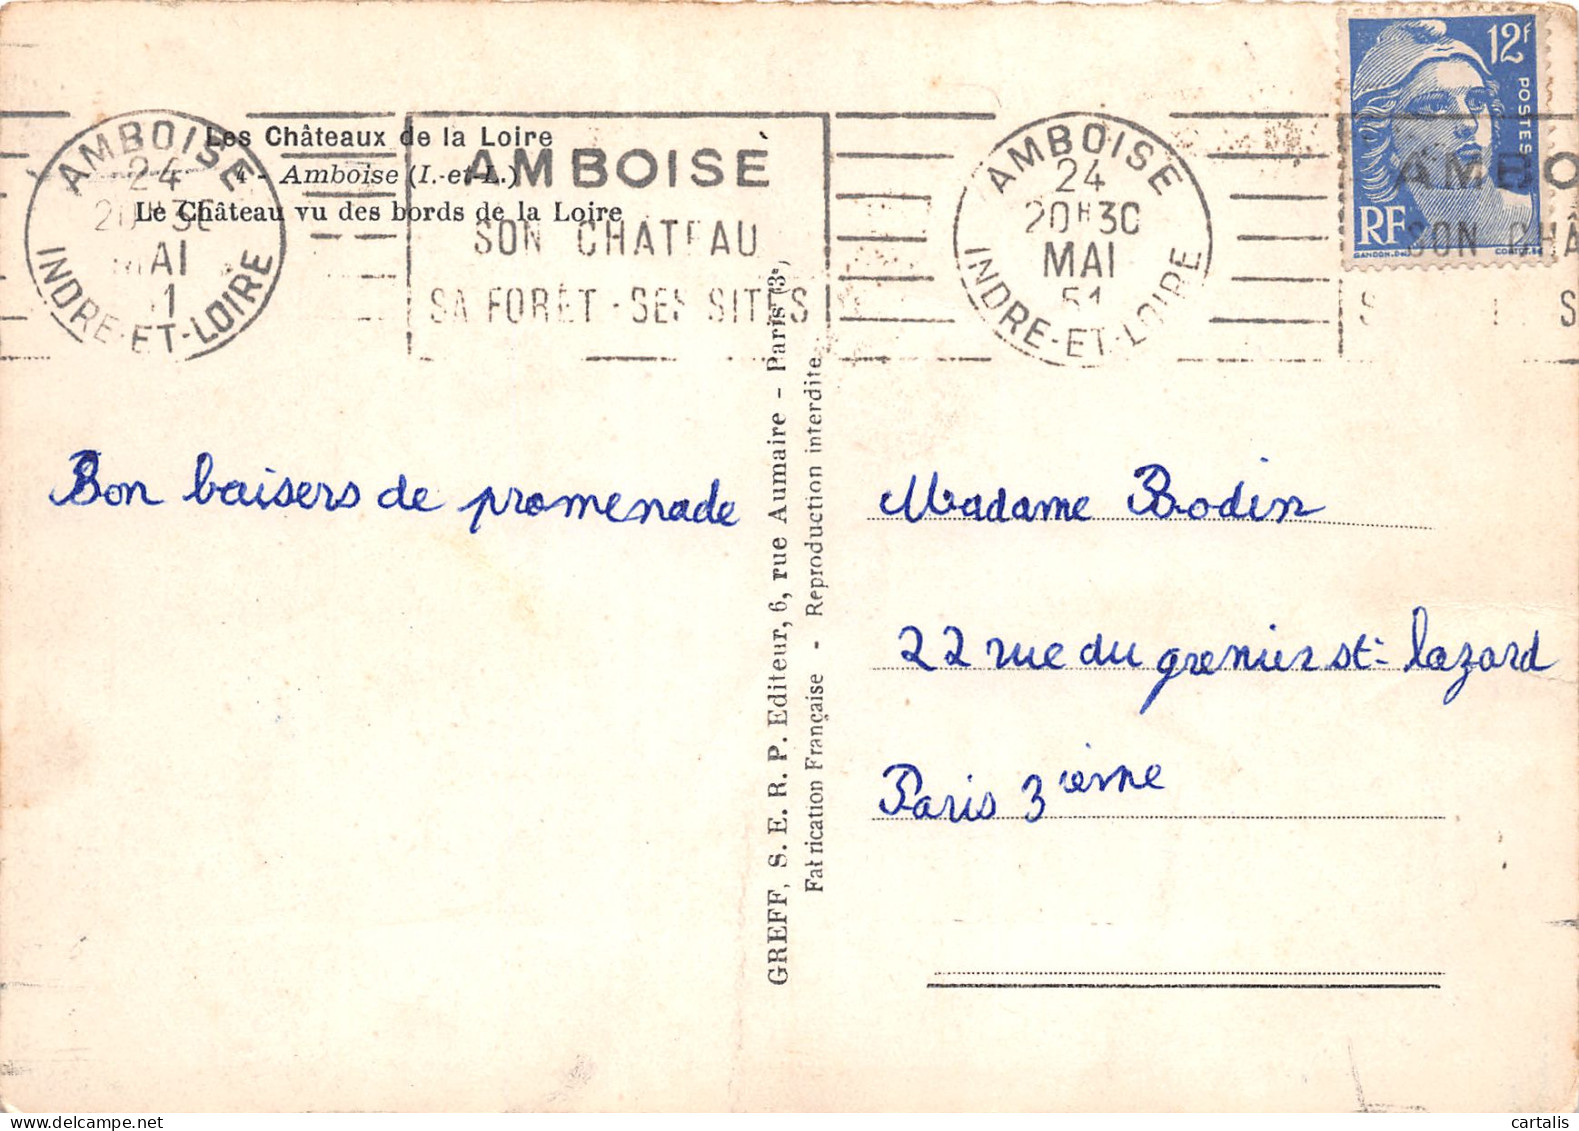 Les Châteaux de la Loire
4 - Amboise (I.-et-L.)
Le Château vu des bords de la Loire
AMBOISE
24
MAI
INDRE-ET-LOIRE
AMBOISE
SON CHATEAU
SA FORÊT - SES SITES
AMBOISE
24
20H30
MAI
51
INDRE-ET-LOIRE
12F
POSTES
RF
GANDON.DEL
AMBO
SON CHÂ
S
Bon baisers de promenade
GREFF, S. E. R. P. Editeur, 6, rue Aumaire - Paris (3e)
Fabrication Française - Reproduction interdite
Madame Bodin
22 rue du grenier st- lazard
Paris 3ième
cartalis